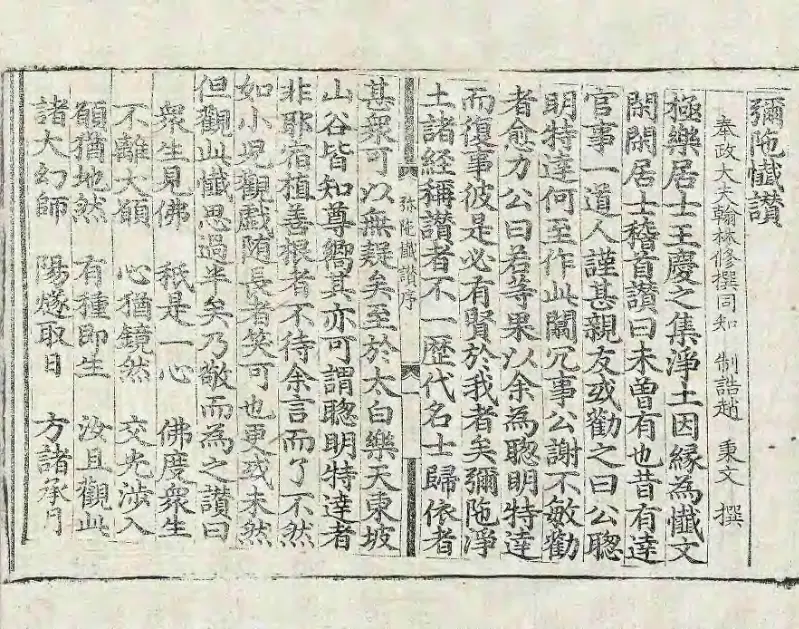 彌陁懺讃
奉政大夫翰林修撰同知 制誥趙 秉文 撰
極樂居士王慶之集淨土因緣為懺文
閑閑居士稽首讃曰未曽有也昔有達
官事一道人謹甚親友或勸之曰公聦
明特達何至作此闒冗事公謝不敏勸
者愈力公曰若等果以余為聦明特達
而復事彼是必有賢於我者矣彌陁淨
土諸經稱讃者不一歷代名士歸依者
弥陁懺讃序 一
甚衆可以無疑矣至於太白樂天東坡
山谷皆知尊嚮其亦可謂聦明特達者
非耶宿植善根者不待余言而了不然
如小児觀戲随長者笑可也更或未然
但觀此懺思過半矣乃敬而為之讃曰
衆生見佛 秖是一心 佛度衆生
不離大願 心猶鏡然 交光渉入
願猶地然 有種即生 汝且觀此
諸大幻師 陽燧取日 方諸承月